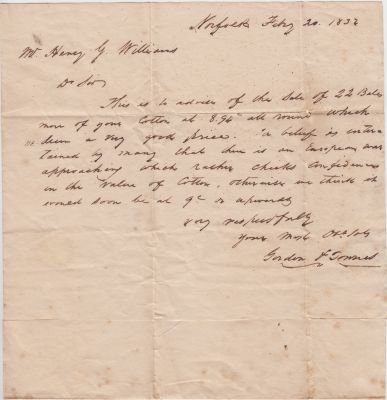 Norfolk Feby 20. 1832
Mr. Henry G. Williams
Dr Sir
This is to advise of the sale of 22 Bales
more of your Cotton at 8.94 all round which
we deem a very good price. A belief is enter
tained by many that there is an European war
approaching which rather checks confidence
in the value of Cotton, otherwise we think it
would soon be at 9c & upwards
very respectfully
Your Most Obt. Svts
Gordon & Townes